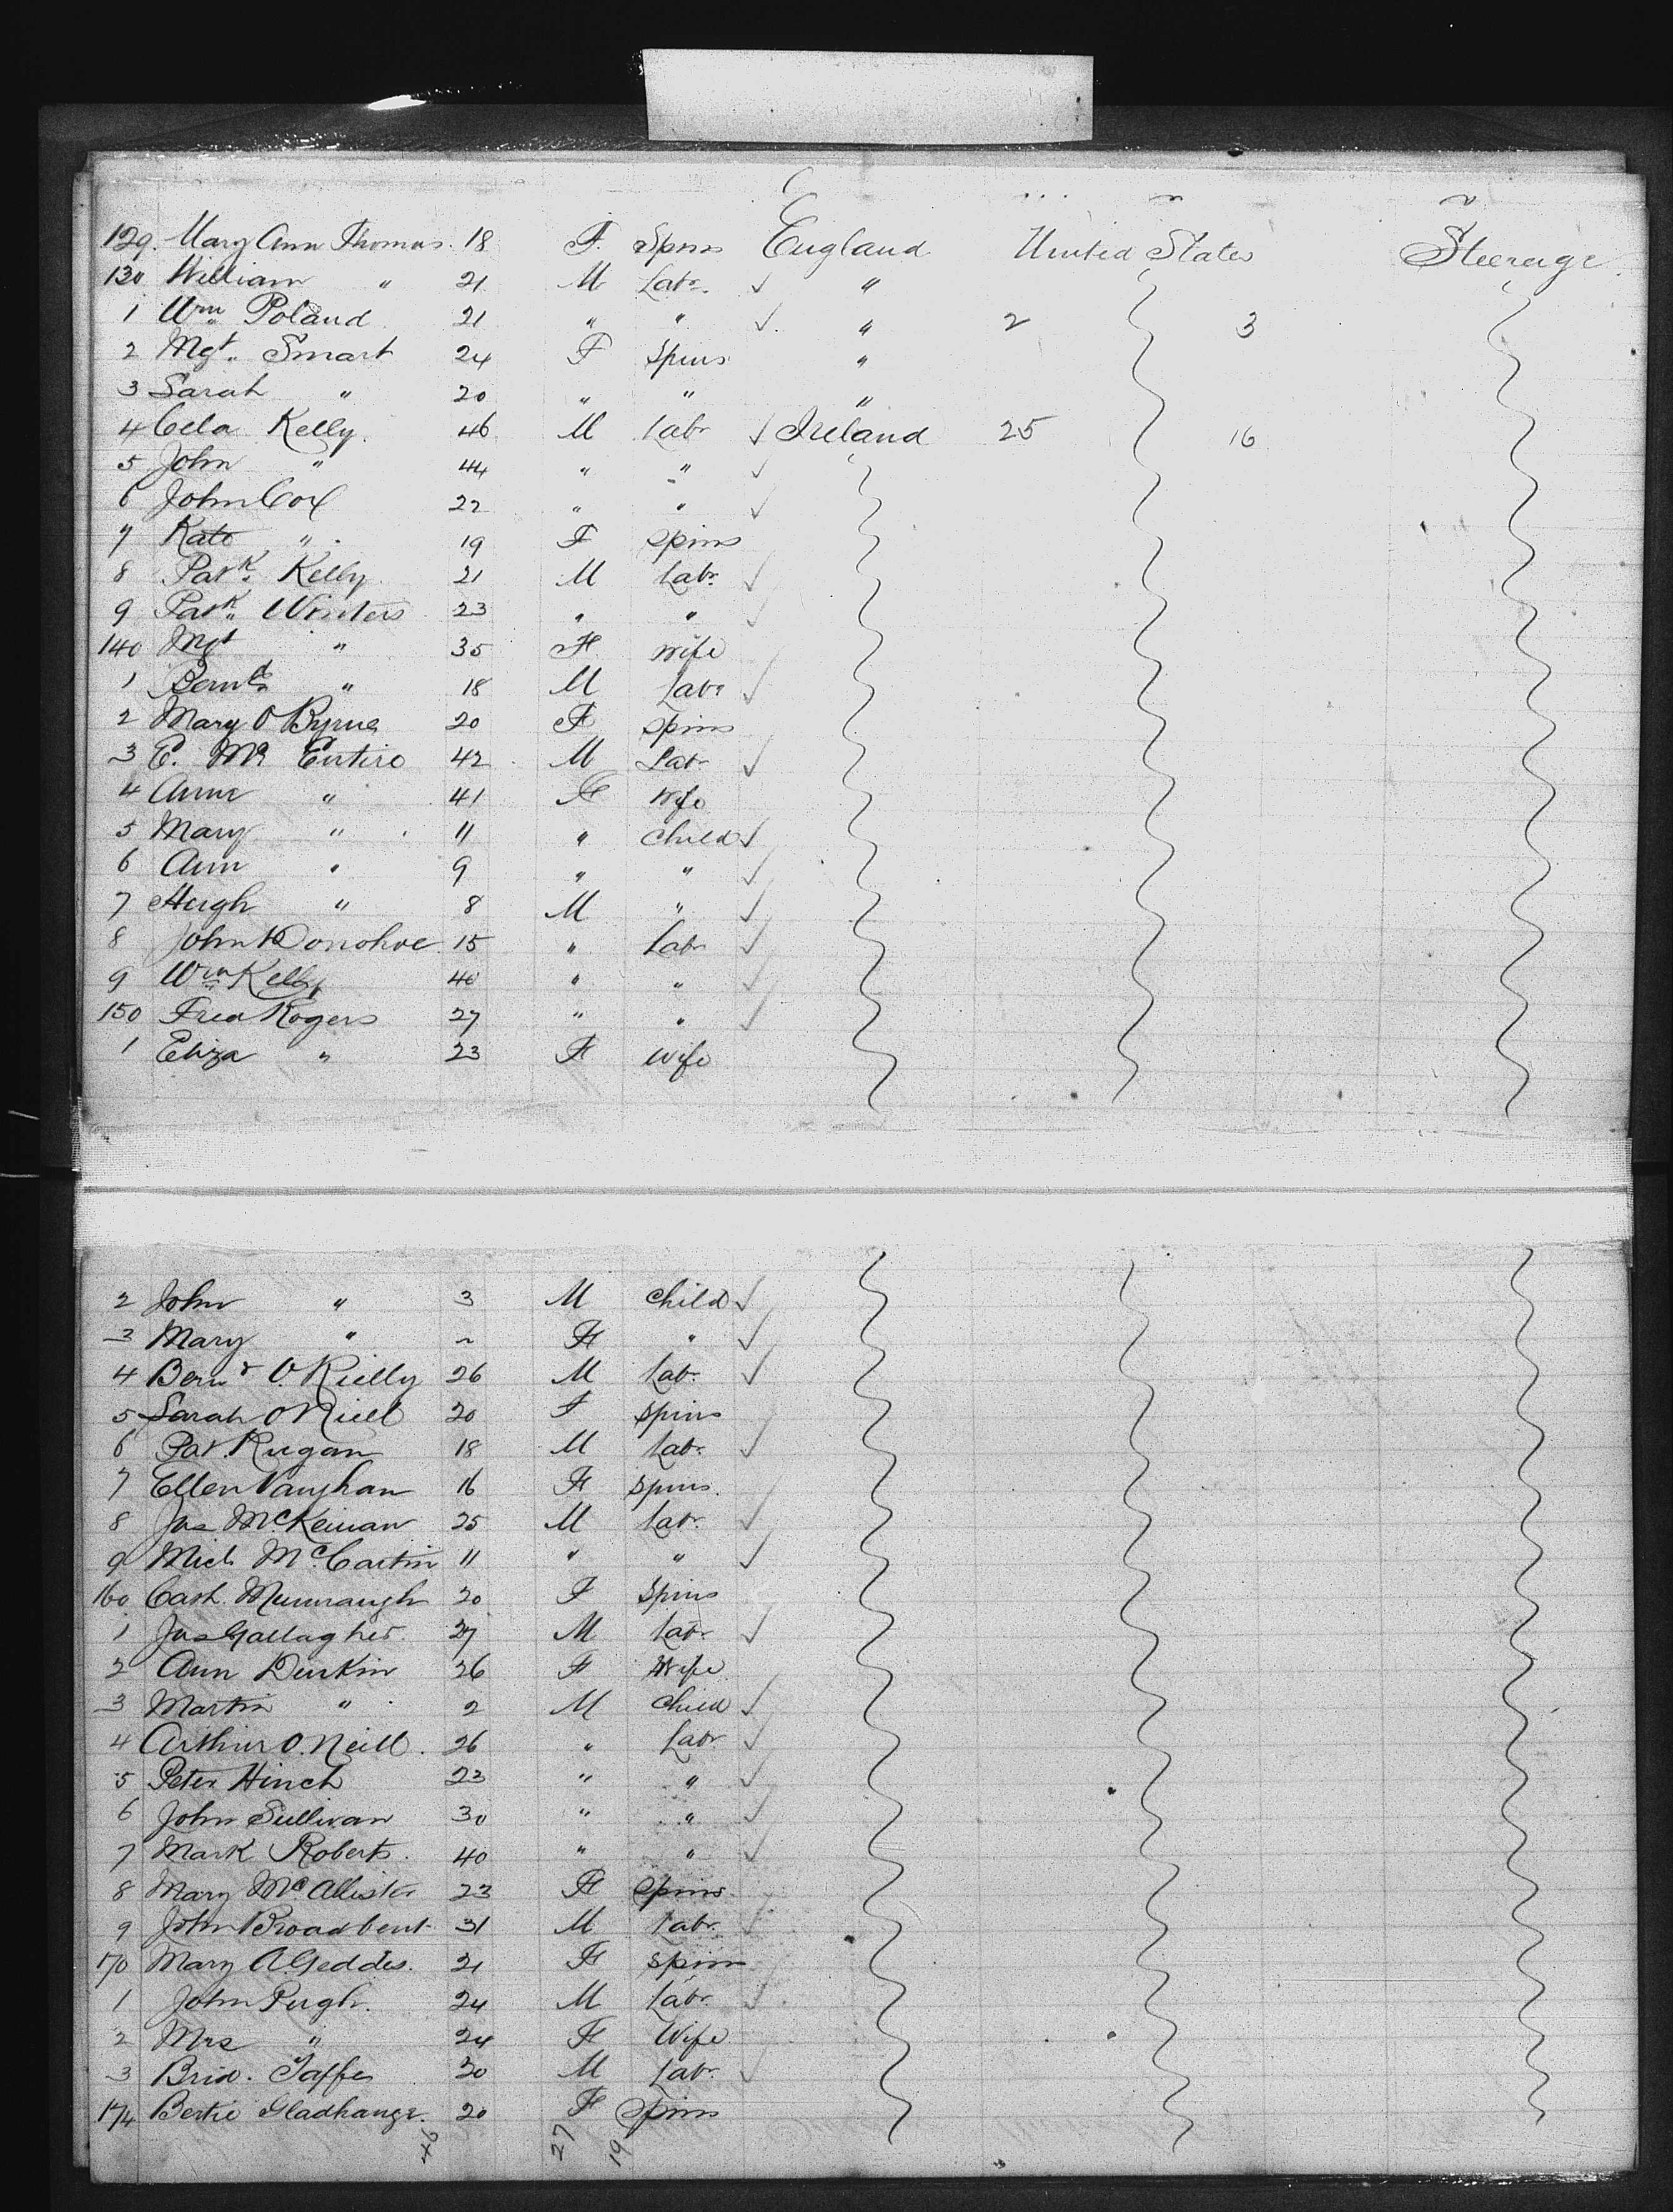 129. Mary Ann Thomas. 18 F. Spins England United States Steerage
130 William " 21 M Labr. ✓ "
1 Wm Poland 21 " " ✓. " 2 3
2 Mgt. Smart 24 F Spins "
3 Sarah " 20 " " "
4 Cela Kelly. 46 M Labr ✓ Ireland 25 16
5 John " 44 " " ✓
6 John Cox 22 " " ✓
7 Kate " 19 F Spins
8 Patk. Kelly 21 M Labr ✓
9 Patk. Winters 23 " " ✓
140 Mgt " 35 F Wife
1 Bernd. " 18 M Labr ✓
2 Mary O Byrne 20 F Spins
3 E. Mc Entire 42 M Labr ✓
4 Anne " 41 F Wife
5 Mary " 11 " Child ✓
6 Ann " 9 " " ✓
7 Hugh " 8 M " ✓
8 John Donohoe 15 " Labr ✓
9 Wm Kelly 40 " " ✓
150 Fred Rogers 27 " " ✓
1 Eliza " 23 F Wife
2 John " 3 M Child ✓
3 Mary " ~ F " ✓
4 Bernd O. Rielly 26 M Labr ✓
5 Sarah O Niell 20 F Spins
6 Pat Rugan 18 M Labr. ✓
7 Ellen Vaughan 16 F Spins.
8 Jas McKeinan 25 M Labr. ✓
9 Mich McCartin 11 " " ✓
160 Cath. 20 F Spins
1 Jas Gallagher. 27 M Labr ✓
2 Ann Durkin 26 F Wife
3 Martin " 2 M Child ✓
4 Arthur O. Neill. 26 " Labr ✓
5 Peter Hinch 23 " " ✓
6 John Sullivan 30 " " ✓
7 Mark Roberts. 40 " " ✓
8 Mary McAllister 23 F Spins
9 John Broadbent 31 M Labr. ✓
170 Mary A Geddes. 21 F Spins
1 John Pugh. 24 M Labr. ✓
2 Mrs " 24 F Wife
3 Brid. Taffe 30 M Labr. ✓
174 Bertie Gladhange. 20 F Spins
46 27 19